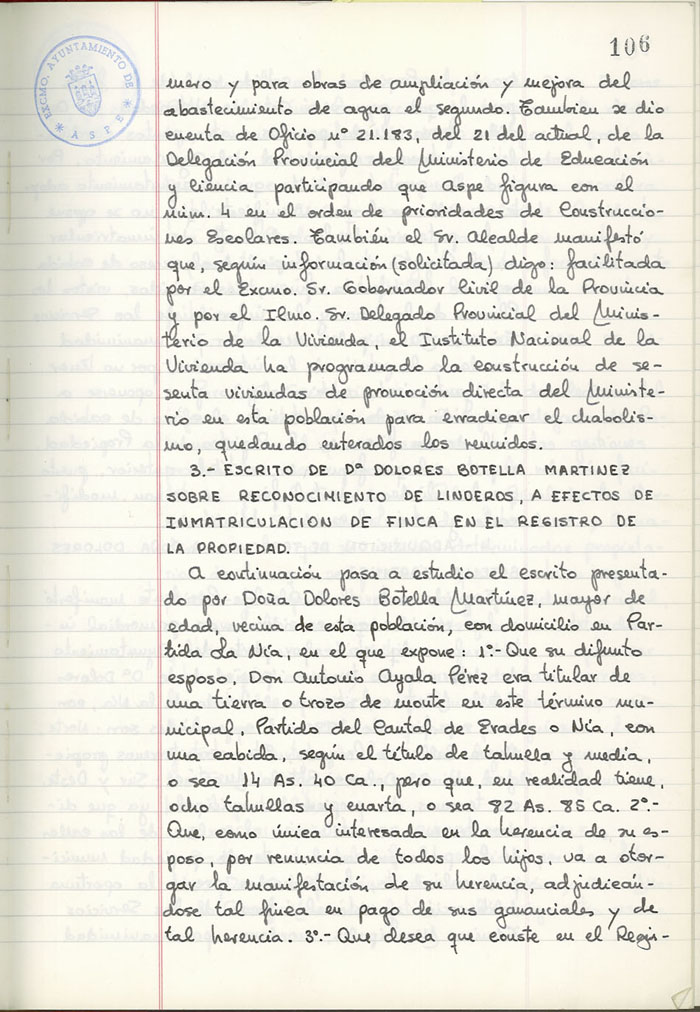 106
EXCMO. AYUNTAMIENTO DE
* ASPE *
mero y para obras de ampliación y mejora del
abastecimiento de agua el segundo. Tambien se dio
cuenta de Oficio nº 21.183, del 21 del actual, de la
Delegación Provincial del Ministerio de Educación
y Ciencia participando que Aspe figura con el
núm. 4 en el orden de prioridades de Construccio-
nes Escolares. También el Sr. Alcalde manifestó
que, según información (solicitada) digo: facilitada
por el Excmo. Sr. Gobernador Civil de la Provincia
y por el Ilmo. Sr. Delegado Provincial del Minis-
terio de la Vivienda, el Instituto Nacional de la
Vivienda ha programado la construcción de se-
senta viviendas de promoción directa del Ministe-
rio en esta población para erradicar el chabolis-
mo, quedando enterados los reunidos.
3.- ESCRITO DE Dª DOLORES BOTELLA MARTINEZ
SOBRE RECONOCIMIENTO DE LINDEROS, A EFECTOS DE
INMATRICULACION DE FINCA EN EL REGISTRO DE
LA PROPIEDAD.
A continuación pasa a estudio el escrito presenta-
do por Doña Dolores Botella Martínez, mayor de
edad, vecina de esta población, con domicilio en Par-
tida La Nía, en el que expone: 1º.- Que su difunto
esposo, Don Antonio Ayala Pérez era titular de
una tierra o trozo de monte en este término mu-
nicipal, Partido del Cantal de Erades o Nía, con
una cabida, según el título de tahulla y media,
o sea 14 As. 40 Ca., pero que, en realidad tiene,
ocho tahullas y cuarta, o sea 82 As. 85 Ca. 2º.-
Que, como única interesada en la herencia de su es-
poso, por renuncia de todos los hijos, va a otor-
gar la manifestación de su herencia, adjudicán-
dose tal finca en pago de sus gananciales y de
tal herencia. 3º.- Que desea que conste en el Regis-